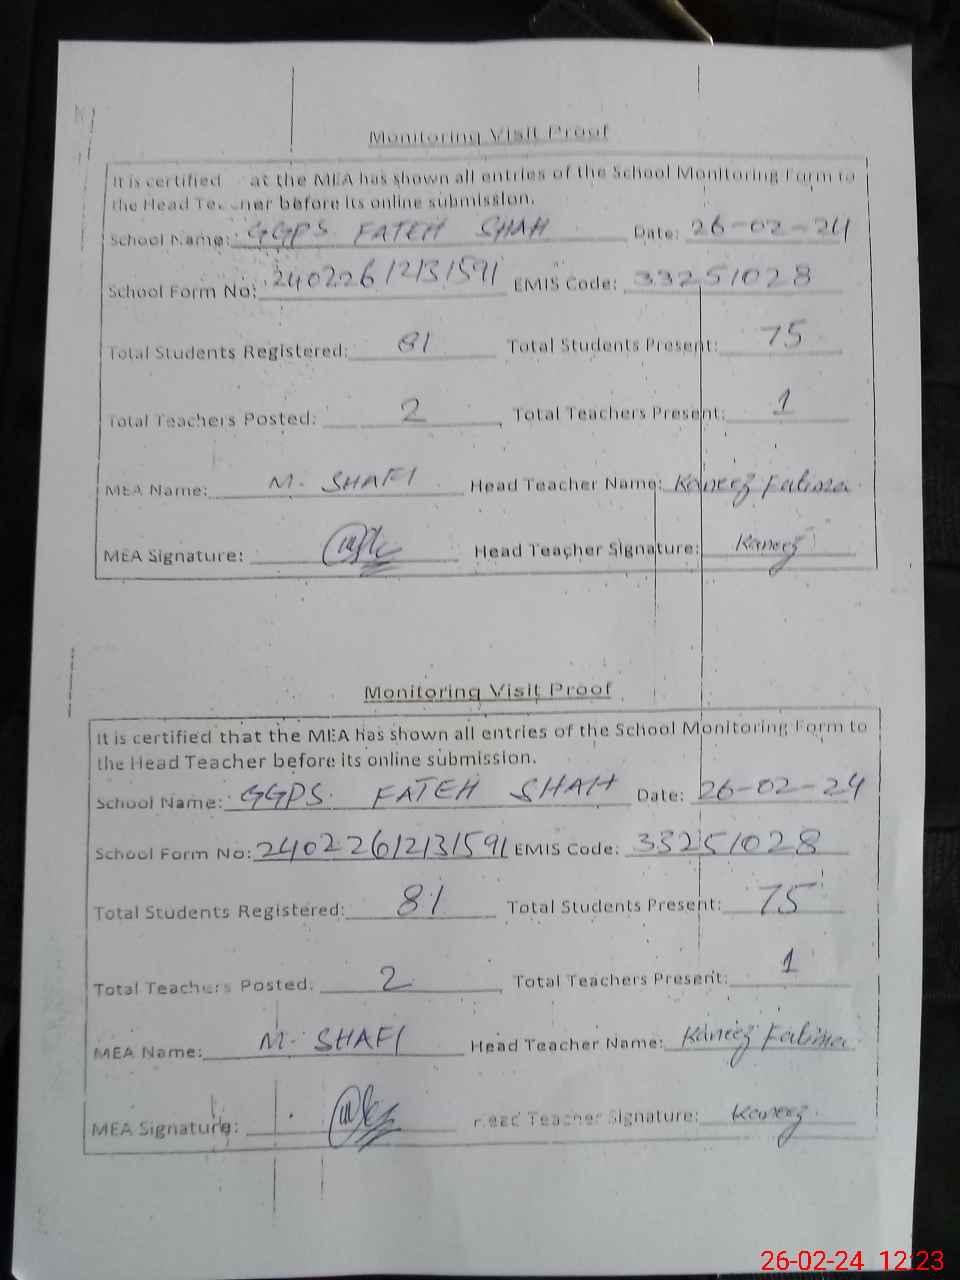 Monitoring Visit Proof
It is certified at the MEA has shown all entries of the School Monitoring Form to
the Head Teacher before its online submission.
School Name: GGPS FATEH SHAH Date: 26-02-24
School Form No: 24022612131591 EMIS Code: 33251028
Total Students Registered: 81 Total Students Present: 75
Total Teachers Posted: 2 Total Teachers Present: 1
MEA Name: M. SHAFI Head Teacher Name: Kaneez Fatima
MEA Signature: Head Teacher Signature: Kaneez
Monitoring Visit Proof
It is certified that the MEA has shown all entries of the School Monitoring Form to
the Head Teacher before its online submission.
School Name: GGPS. FATEH SHAH Date: 26-02-24
School Form No: 24022612131591 EMIS Code: 33251028
Total Students Registered: 81 Total Students Present: 75
Total Teachers Posted: 2 Total Teachers Present: 1
MEA Name: M. SHAFI Head Teacher Name: Kaneez Fatima
MEA Signature: Head Teacher Signature: Kaneez
26-02-24 12:23